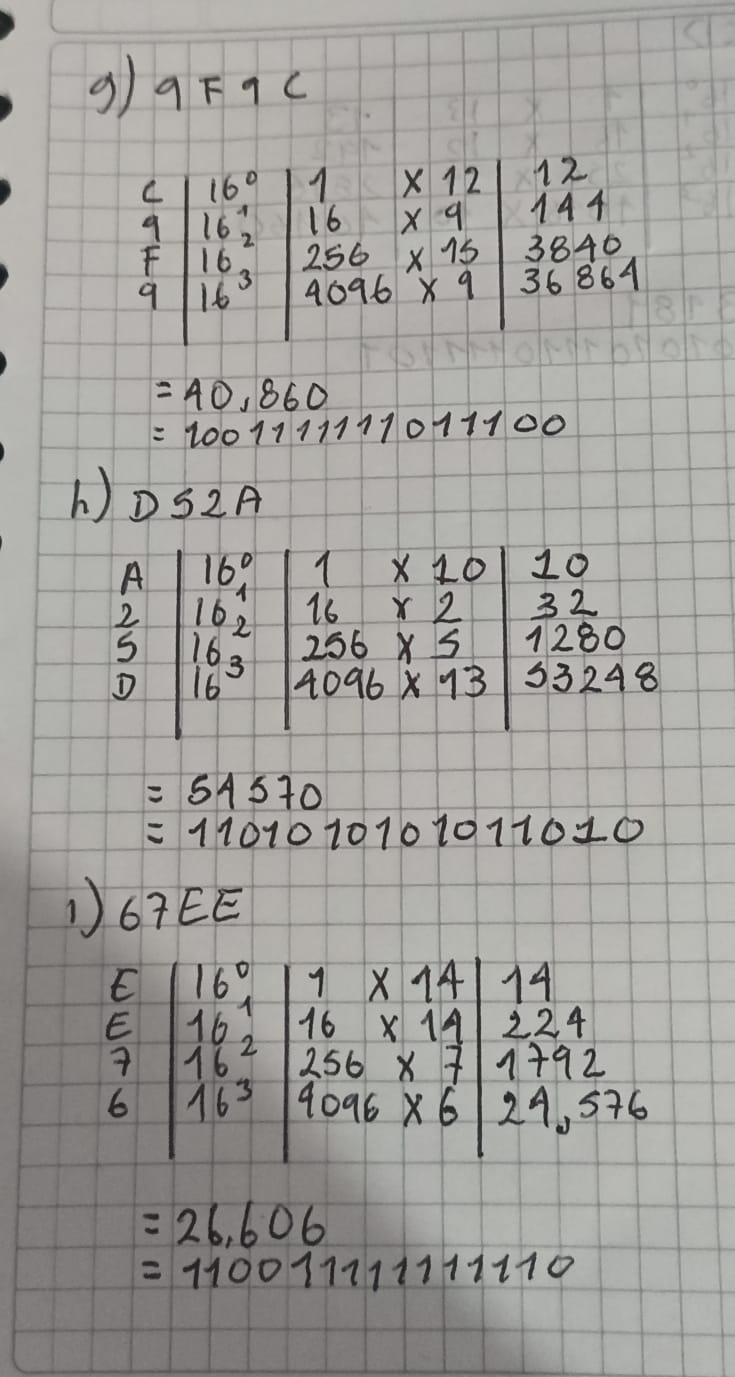 g) 9F9C
C | 16⁰ | 1 x 12 | 12
9 | 16¹ | 16 x 9 | 144
F | 16² | 256 x 15 | 3840
9 | 16³ | 4096 x 9 | 36864
= 40,860
= 1001111111011100
h) D52A
A | 16⁰ | 1 x 10 | 10
2 | 16¹ | 16 x 2 | 32
5 | 16² | 256 x 5 | 1280
D | 16³ | 4096 x 13 | 53248
= 54570
= 1101010101011010
i) 67EE
E | 16⁰ | 1 x 14 | 14
E | 16¹ | 16 x 14 | 224
7 | 16² | 256 x 7 | 1792
6 | 16³ | 4096 x 6 | 24,576
= 26,606
= 110011111111110